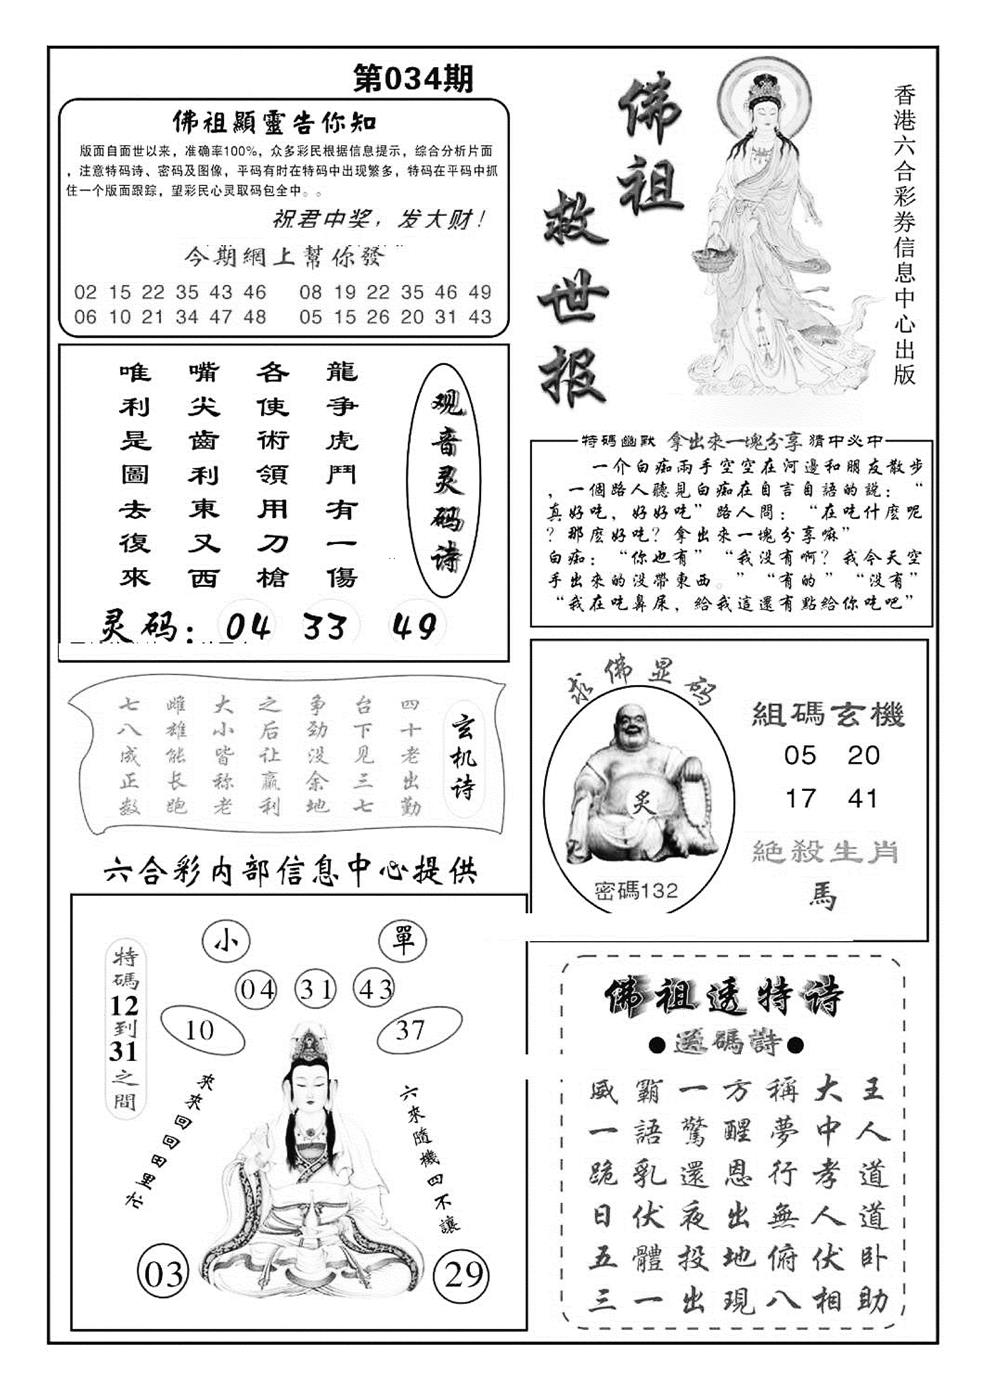 第034期
佛祖顯靈告你知
版面自面世以来，准确率100%，众多彩民根据信息提示，综合分析片面
，注意特码诗、密码及图像，平码有时在特码中出现繁多，特码在平码中抓
住一个版面跟踪，望彩民心灵取码包全中。。
祝君中奖，发大财！
今期網上幫你發
02 15 22 35 43 46 08 19 22 35 46 49
06 10 21 34 47 48 05 15 26 20 31 43
佛祖
救世报
香港六合彩券信息中心出版
观音灵码诗
龍争虎鬥有一傷
各使術領用刀槍
嘴尖齒利東又西
唯利是圖去復來
灵码：04 33 49
特碼幽默 拿出來一塊分享 猜中必中
一个白痴兩手空空在河邊和朋友散步
，一個路人聽見白痴在自言自語的說：“
真好吃，好好吃”路人問：“在吃什麽呢
？那麽好吃？拿出來一塊分享嘛”
白痴：“你也有”“我没有啊？我今天空
手出來的没帶東西。”“有的”“没有”
“我在吃鼻屎，給我這還有點給你吃吧”
玄机诗
四十老出勤
台下见三七
争劲没余地
之后让赢利
大小皆称老
雌雄能长跑
七八成正数
求佛显码
炙
密碼132
組碼玄機
05 20
17 41
絶殺生肖
馬
六合彩内部信息中心提供
小 單
04 31 43
10 37
特碼12到31之間
來來回回田里忙
六來随機四不讓
03 29
佛祖透特诗
●送碼詩●
威霸一方稱大王
一語驚醒夢中人
跪乳還恩行孝道
日伏夜出無人道
五體投地俯伏卧
三一出現八相助